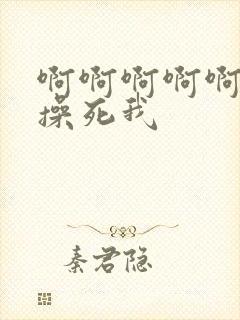 啊啊啊啊啊
操死我
秦君隐